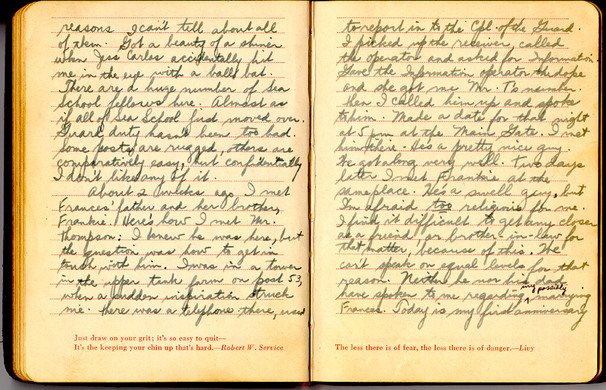 reasons I can't tell about all
of them. Got a beauty of a shiner
when Jess Carles accidentally hit
me in the eye with a ball bat.
There are a huge number of Sea
School fellows here. Almost as
if all of Sea School just moved over.
Guard duty hasn't been too bad.
Some posts are rugged, others are
comparatively easy, but confidentially
I don't like any of it.
About 2 weeks ago I met
Frances' father and her brother,
Frankie. Here's how I met Mr.
Thompson: I knew he was here, but
the question was how to get in
touch with him. I was in a tower
in the upper tank farm on post 53,
when a sudden inspiration struck
me. There was a telefone there, used
Just draw on your grit; it's so easy to quit—
It's the keeping your chin up that's hard.—Robert W. Service
to report in to the Cpl. of the Guard.
I picked up the receiver, called
the operator and asked for Information.
Gave the Information operator the dope
and she got me Mr. T's number.
Then I called him up and spoke
to him. Made a date for that night
at 5 pm at the Main Gate. I met
him there. He's a pretty nice guy.
We got along very well. Two days
later I met Frankie at the
same place. He's a swell guy, but
I'm afraid too religious for me.
I find it difficult to get any closer
as a friend, or brother-in-law for
that matter, because of this. We
can't speak on equal levels for that
reason. Neither he nor his dad
have spoken to me regarding my possibly marrying
Frances. Today is my first anniversary
The less there is of fear, the less there is of danger.—Livy